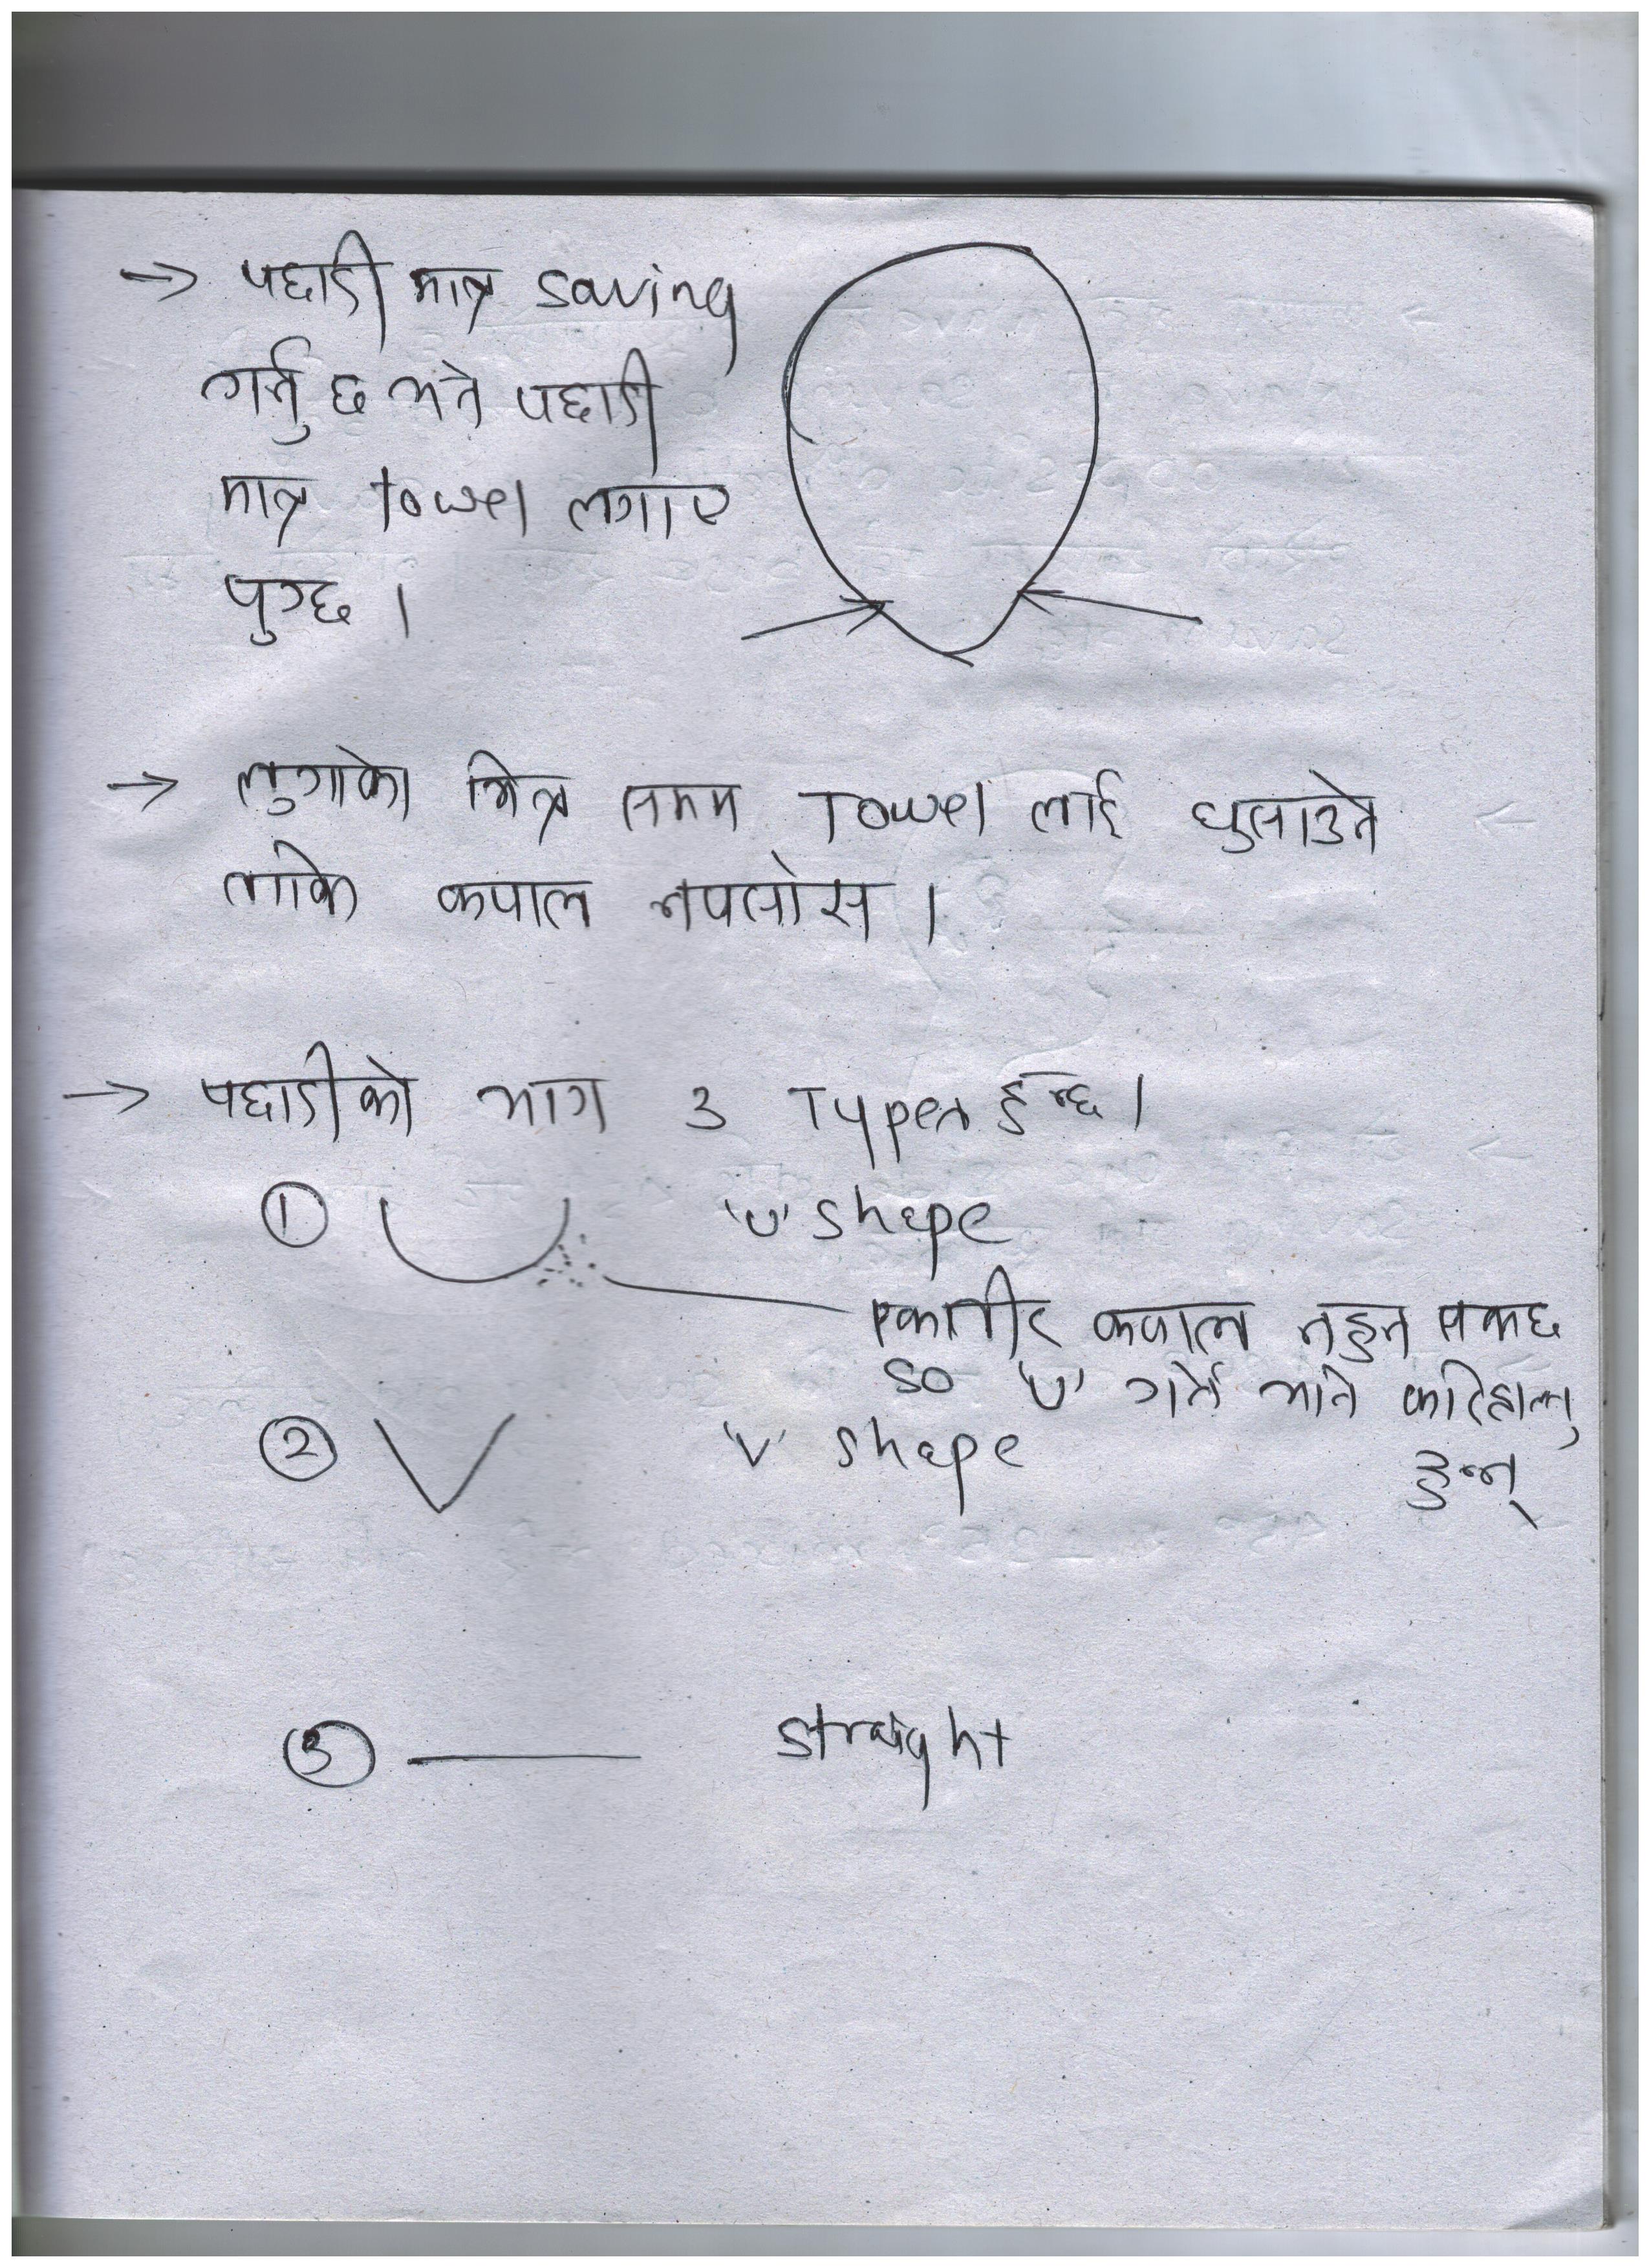 → पछाडी मात्र saving
गर्नु छ भने पछाडी
मात्र towel लगाए
पुग्छ ।
→ लुगाको भित्र सम्म Towel लाई घुसाउने
ताकि कपाल नपसोस ।
→ पछाडीको भाग 3 Types हुन्छ ।
① 'U' shape
एकातीर कपाल नहुन सक्छ
so 'U' गर्ने भने काटिहाल्नु
② 'V' shape
हुन्न्
③ straight